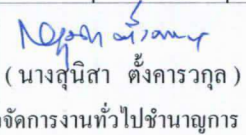 (นางสุนิสา ตั้งคารวกุล)
จัดการงานทั่วไปชำนาญการ